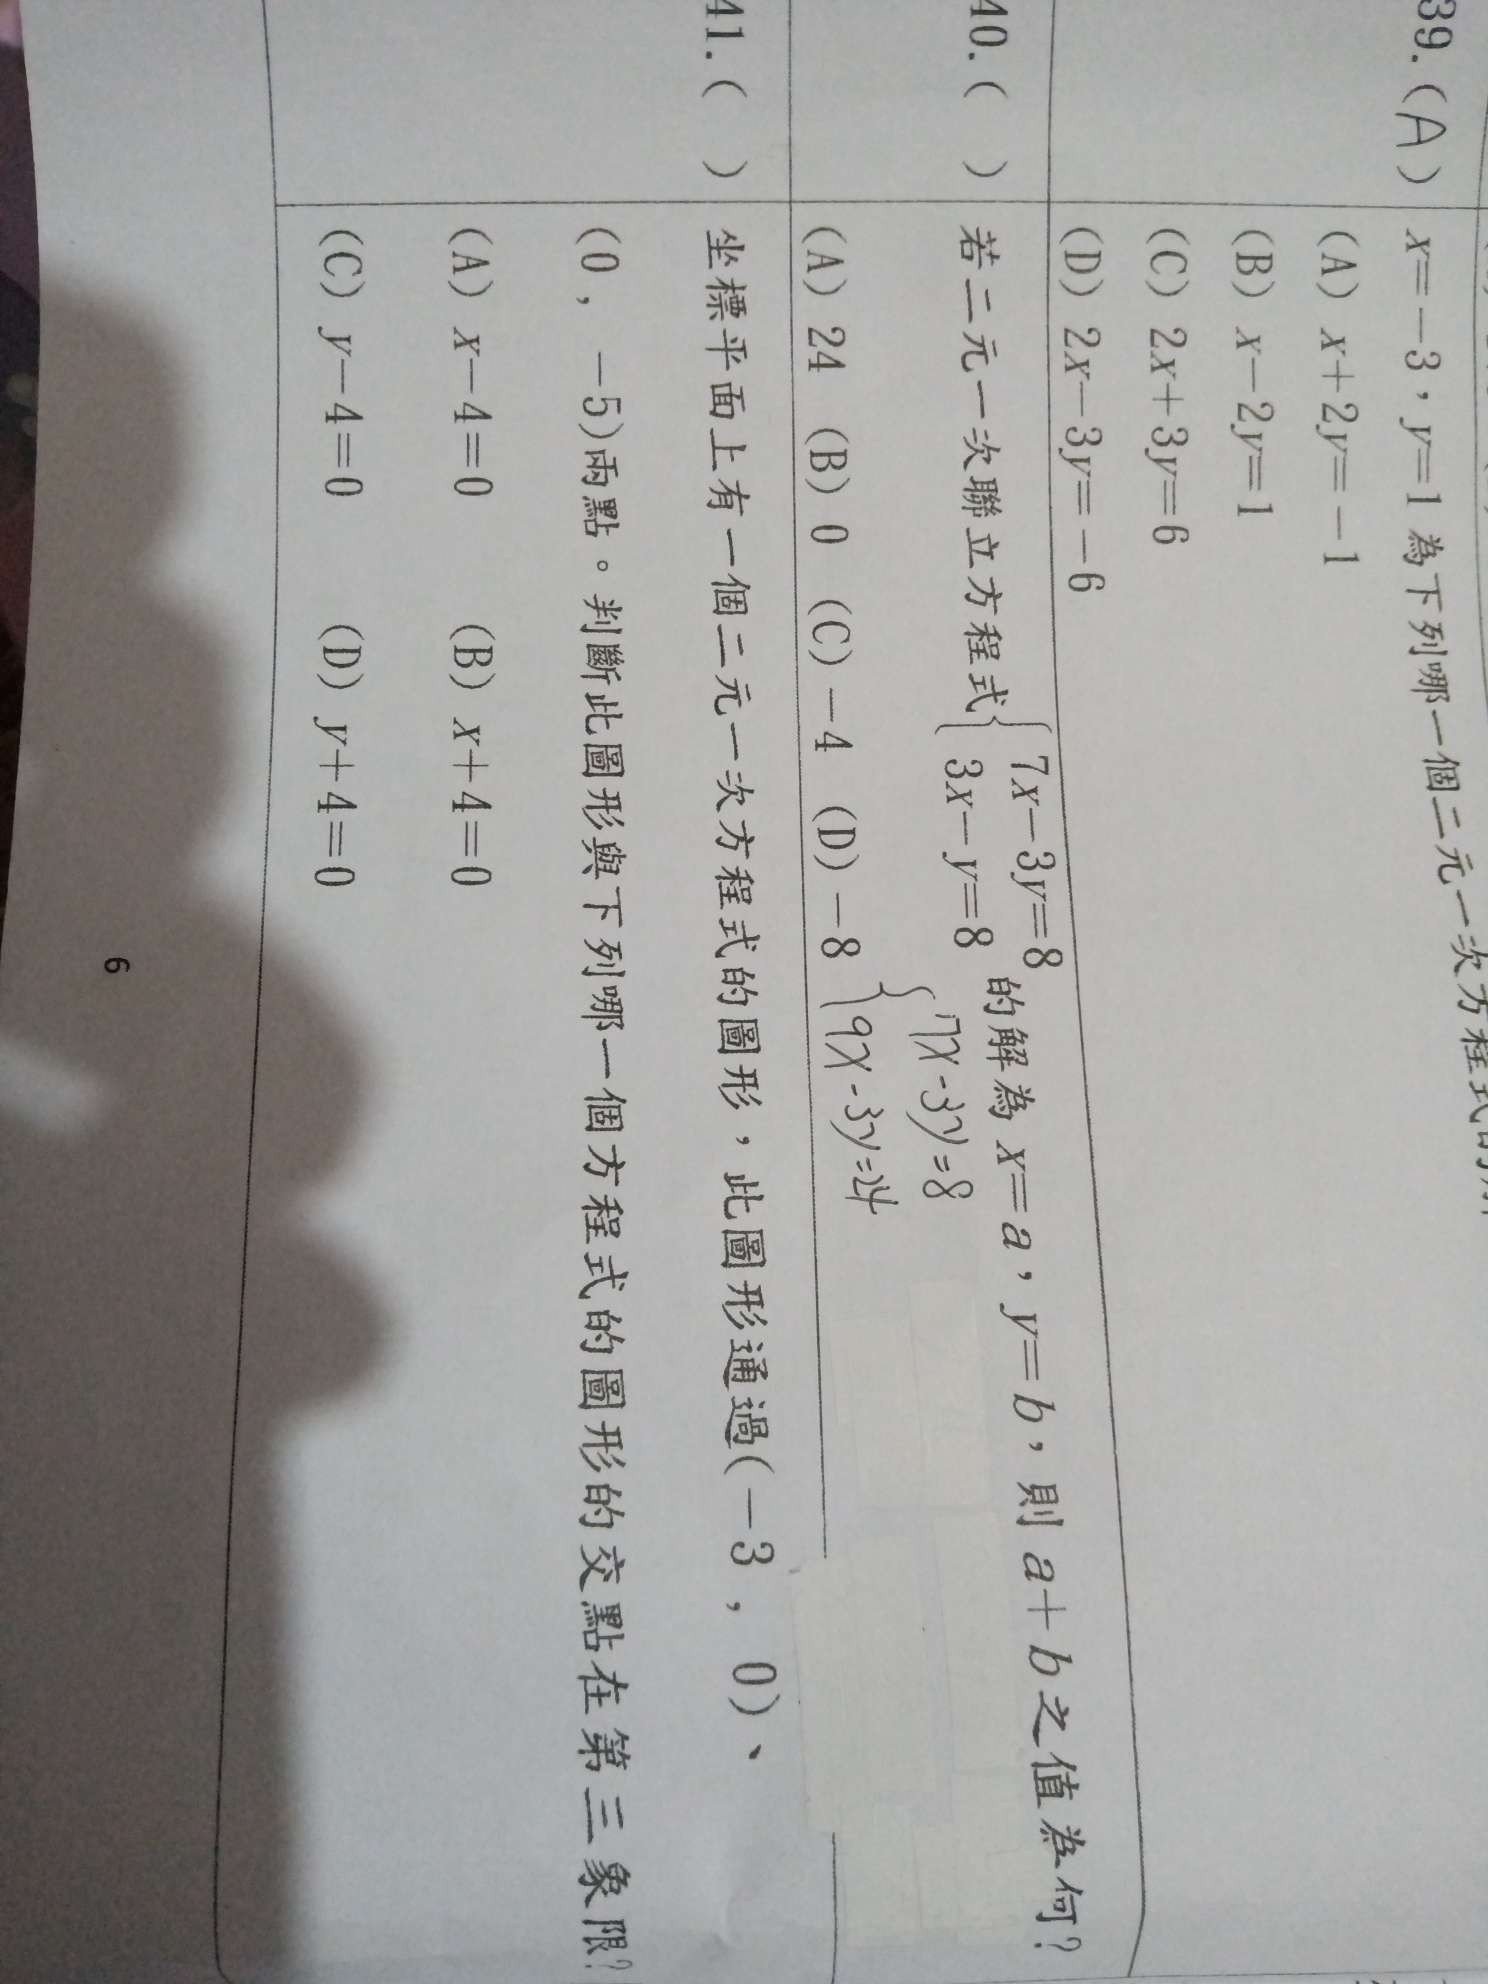 39.(A) x=-3，y=1 為下列哪一個二元一次方程式的解
(A) x+2y=-1
(B) x-2y=1
(C) 2x+3y=6
(D) 2x-3y=-6
40.( ) 若二元一次聯立方程式{7x-3y=8 3x-y=8 的解為 x=a，y=b，則 a+b 之值為何?
{7x-3y=8
(A) 24 (B) 0 (C) -4 (D) -8 9x-3y=24
41.( ) 坐標平面上有一個二元一次方程式的圖形，此圖形通過(-3，0)、
(0，-5)兩點。判斷此圖形與下列哪一個方程式的圖形的交點在第三象限?
(A) x-4=0 (B) x+4=0
(C) y-4=0 (D) y+4=0
6